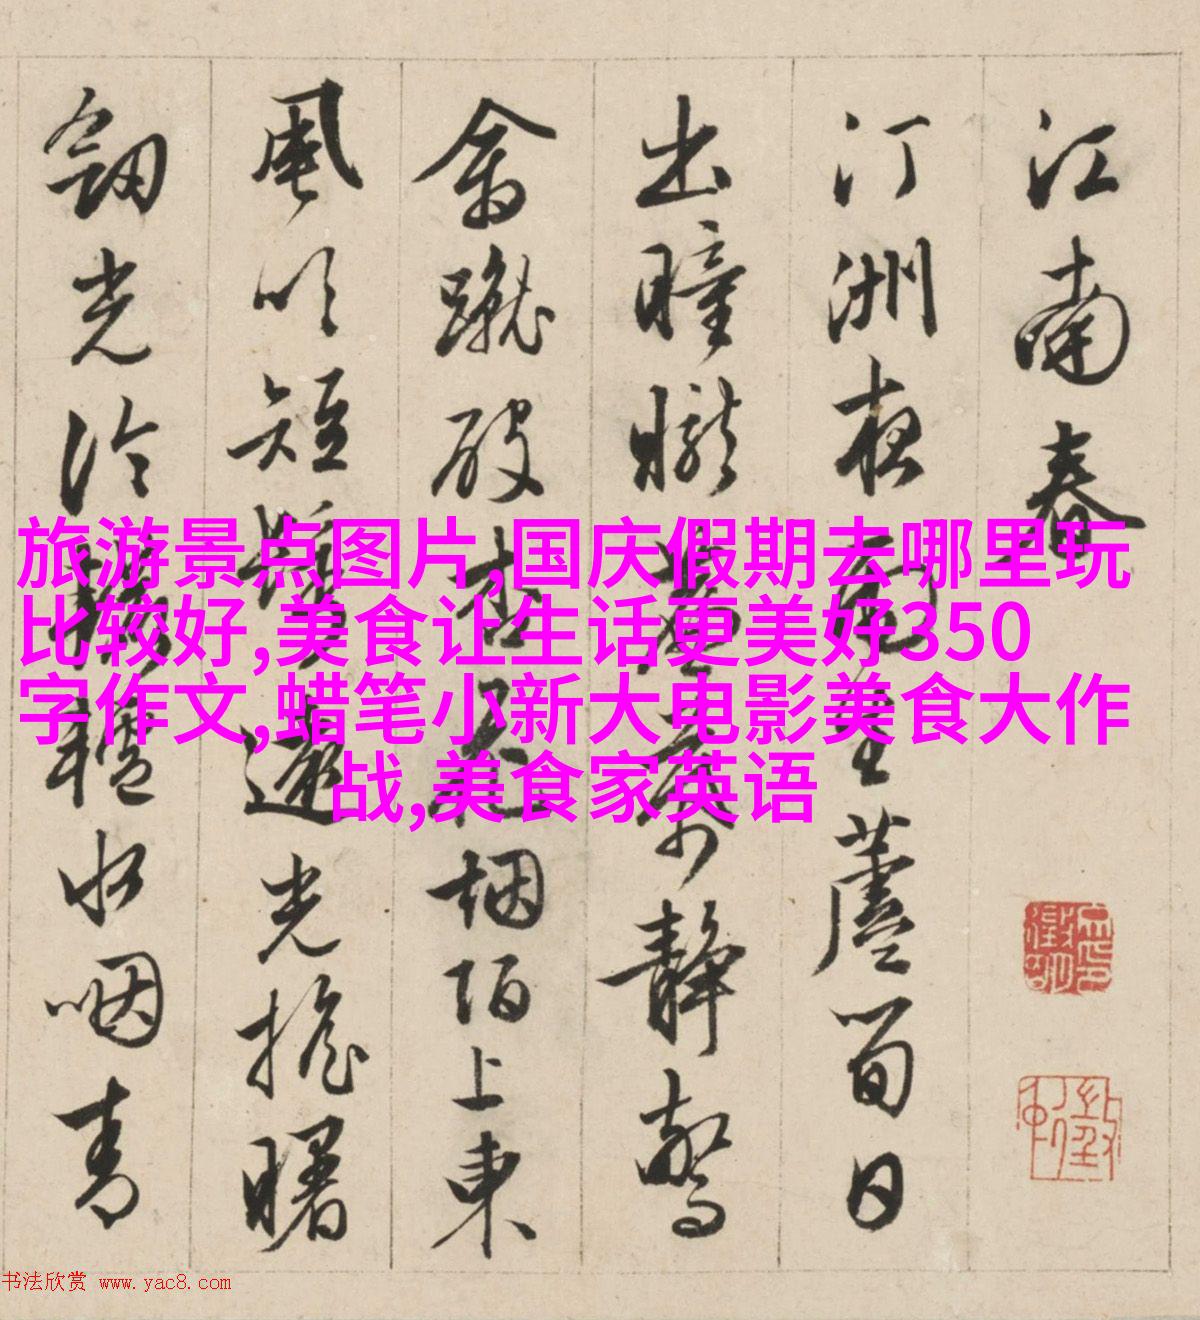 江南春
汀洲夜雨生蘆筍日
出曈曨簾幕靜驚
禽蹴破杏花烟陌上東
風吹短鬢 光搖曙
劒光冷轆轤水咽青
旅游景点图片,国庆假期去哪里玩
比较好,美食让生话更美好350
字作文,蜡笔小新大电影美食大作
战,美食家英语
书法欣赏 www.yac8.com